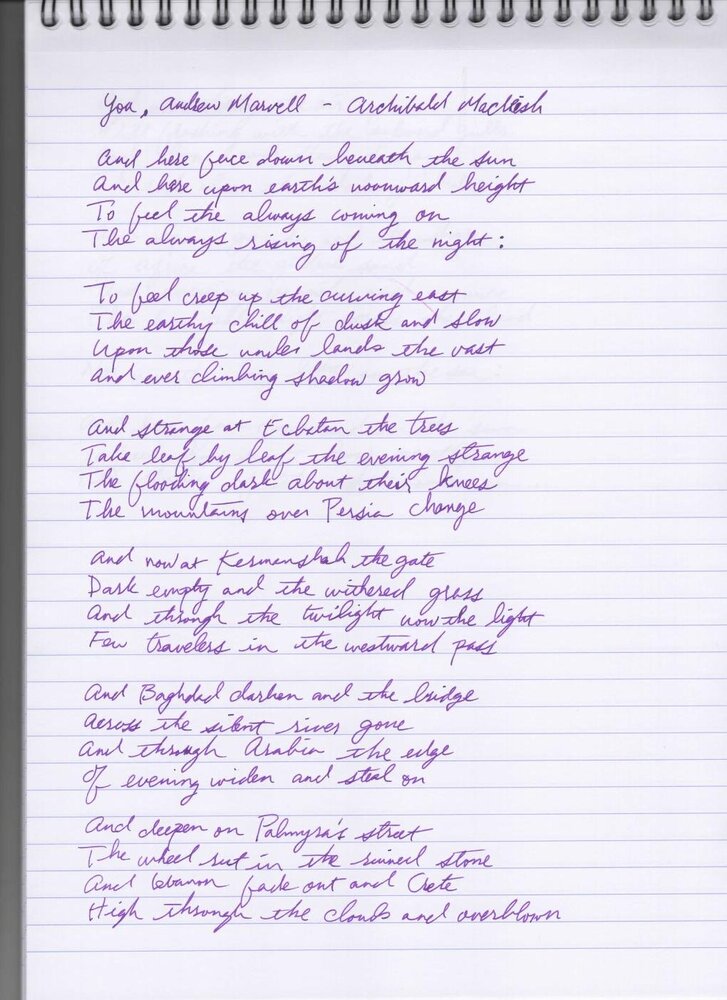 You, Andrew Marvell - Archibald MacLeish
And here face down beneath the sun
And here upon earth's noonward height
To feel the always coming on
The always rising of the night:
To feel creep up the curving east
The earthy chill of dusk and slow
Upon those under lands the vast
And ever climbing shadow grow
And strange at Ecbatan the trees
Take leaf by leaf the evening strange
The flooding dark about their knees
The mountains over Persia change
And now at Kermanshah the gate
Dark empty and the withered grass
And through the twilight now the light
Few travelers in the westward pass
And Baghdad darken and the bridge
Across the silent river gone
And through Arabia the edge
Of evening widen and steal on
And deepen on Palmyra's street
The wheel rut in the ruined stone
And Lebanon fade out and Crete
High through the clouds and overblown